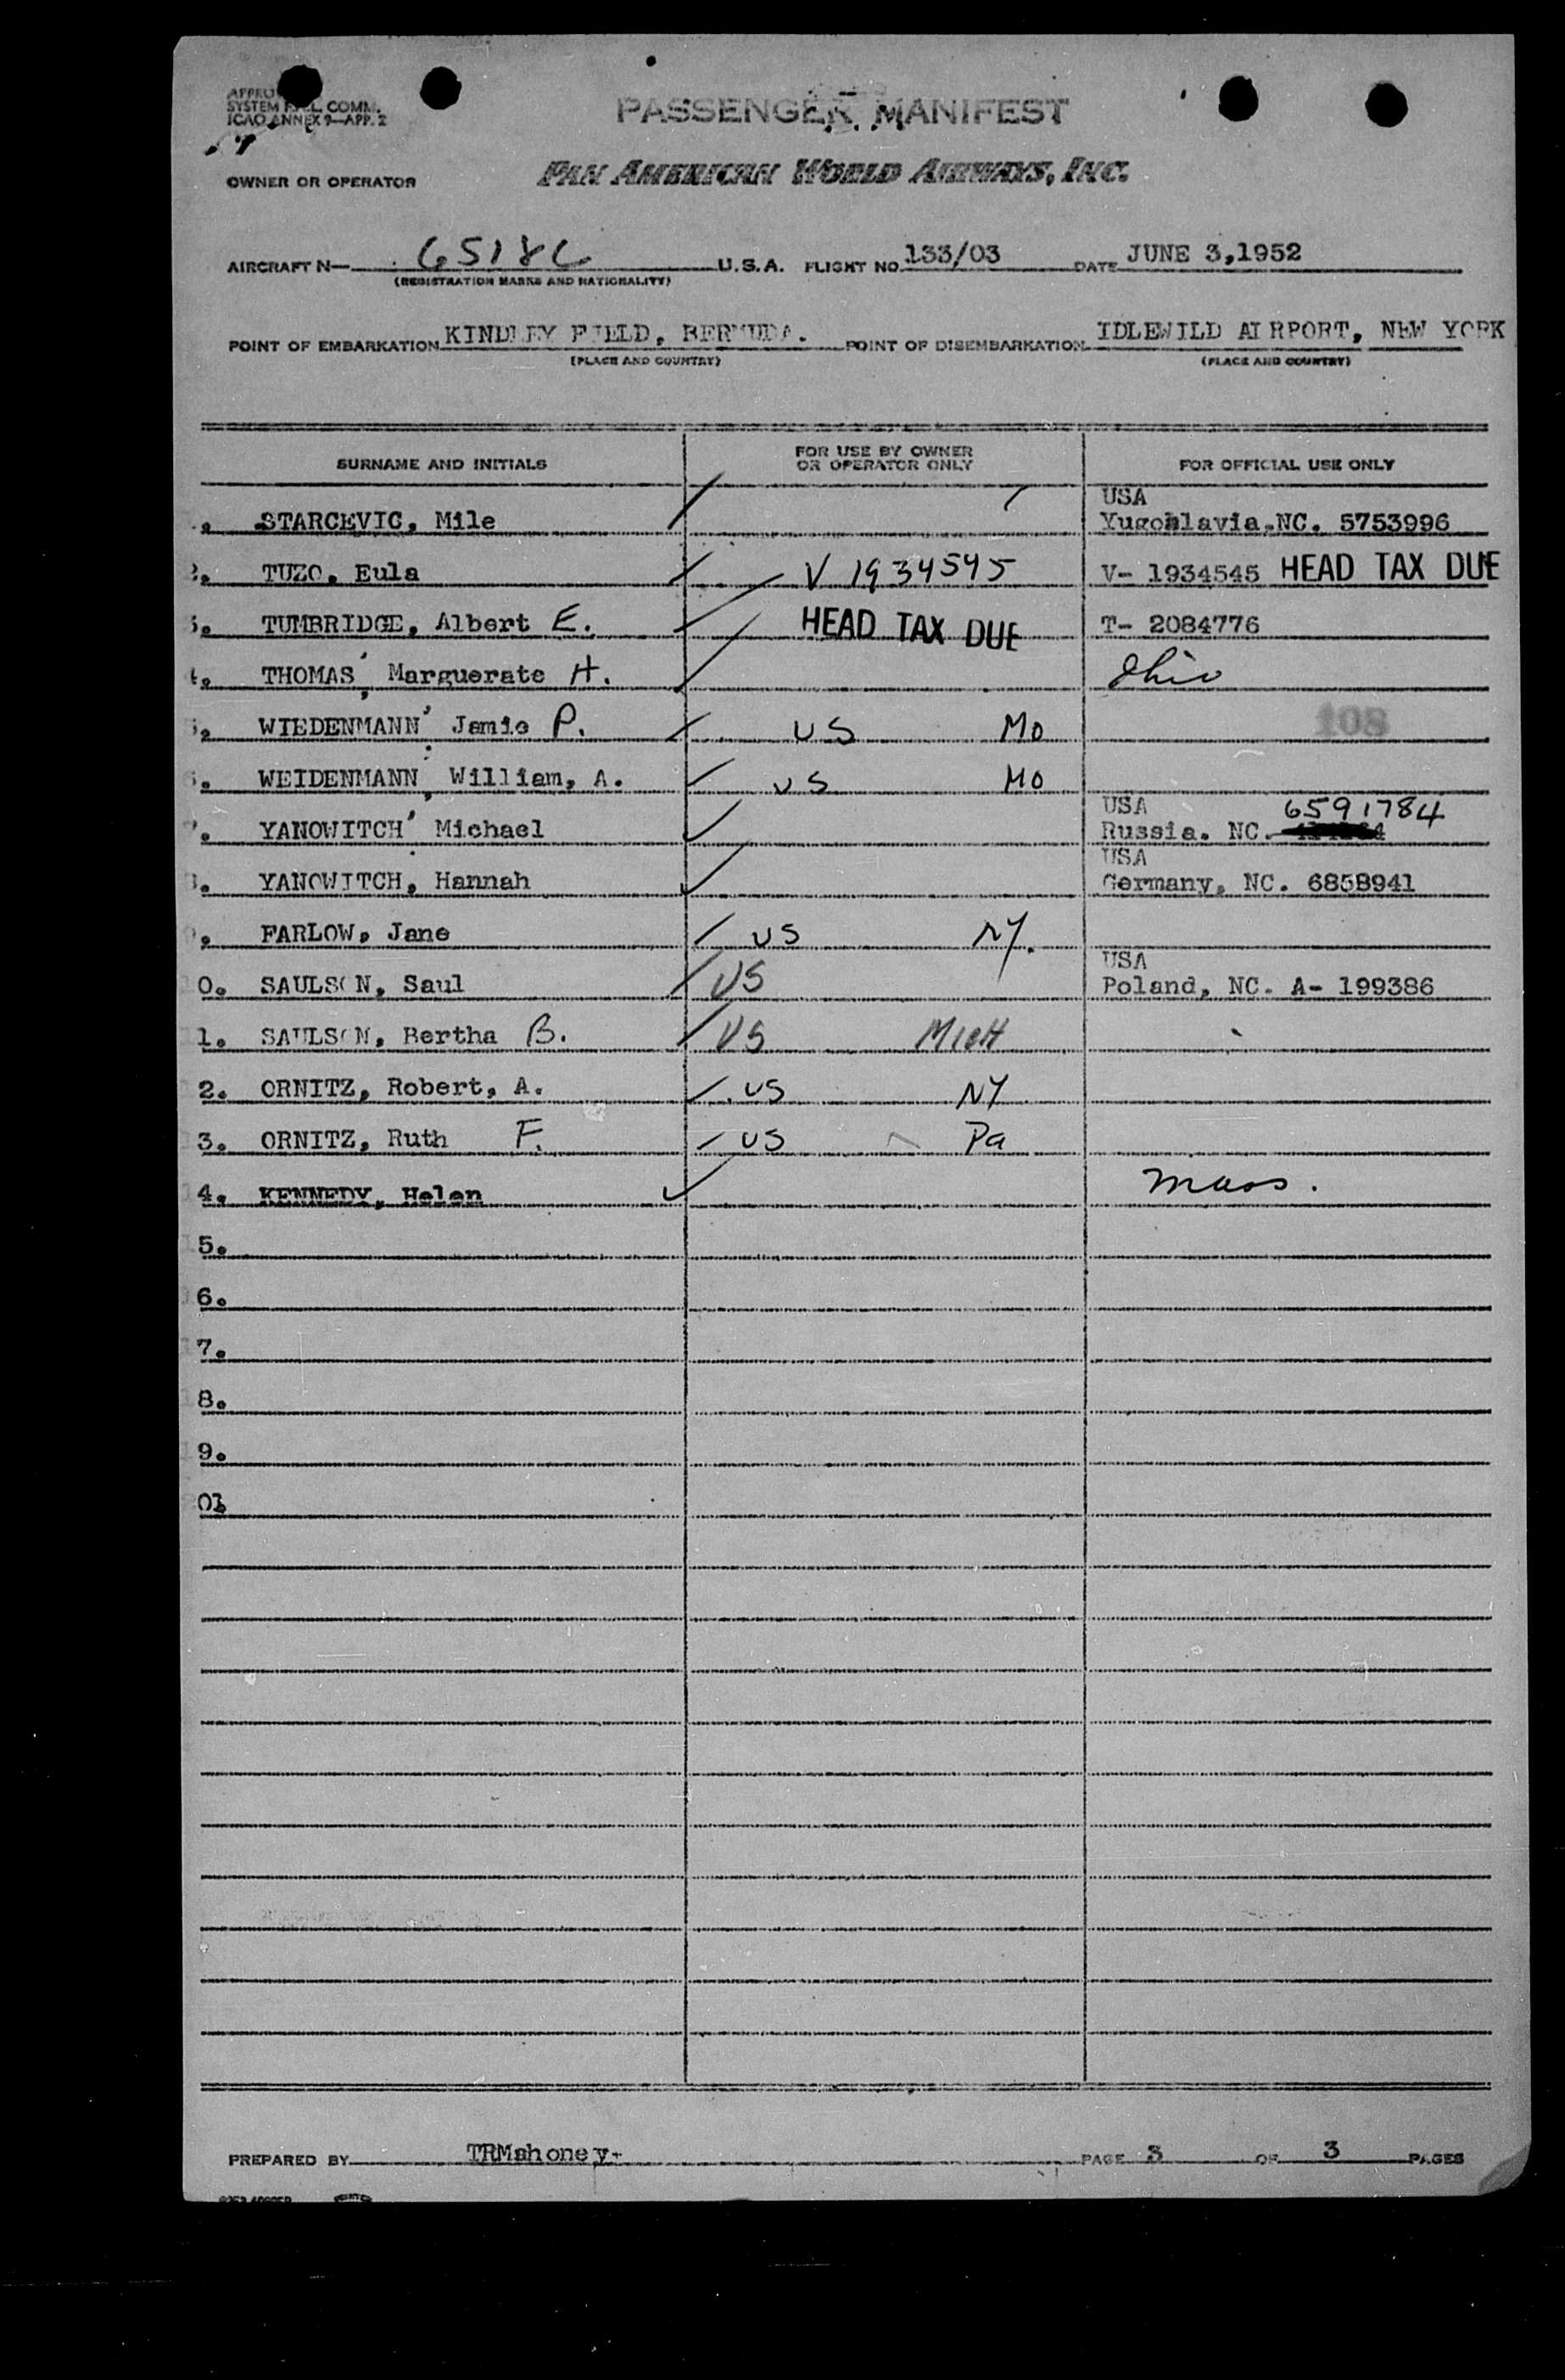 SYSTEM COMM.
ICAO ANNEX 9—APP. 2
PASSENGER MANIFEST
OWNER OR OPERATOR PAN AMERICAN WORLD AIRWAYS, INC.
AIRCRAFT N— 65186 U.S.A. FLIGHT NO. 133/03 DATE JUNE 3,1952
(REGISTRATION MARKS AND NATIONALITY)
POINT OF EMBARKATION KINDLEY FIELD, BERMUDA. POINT OF DISEMBARKATION IDLEWILD AIRPORT, NEW YORK
(PLACE AND COUNTRY) (PLACE AND COUNTRY)
SURNAME AND INITIALS FOR USE BY OWNER OR OPERATOR ONLY FOR OFFICIAL USE ONLY
USA
STARCEVIC, Mile Yugoslavia.NC. 5753996
TUZO, Eula V 1934545 V- 1934545 HEAD TAX DUE
TUMBRIDGE, Albert E. HEAD TAX DUE T- 2084776
THOMAS, Marguerate H. Ohio
WIEDENMANN Jamie P. US Mo 108
WEIDENMANN, William, A. US Mo
USA 6591784
YANOWITCH Michael Russia. NC.
USA
YANOWITCH, Hannah Germany, NC. 6858941
FARLOW, Jane US NY.
USA
0. SAULSON, Saul US Poland, NC. A- 199386
1. SAULSON, Bertha B. US MICH
2. ORNITZ, Robert, A. US NY
3. ORNITZ, Ruth F. US Pa
4. KENNEDY, Helen Mass.
5.
6.
7.
8.
9.
PREPARED BY TRMahoney- PAGE 3 OF 3 PAGES